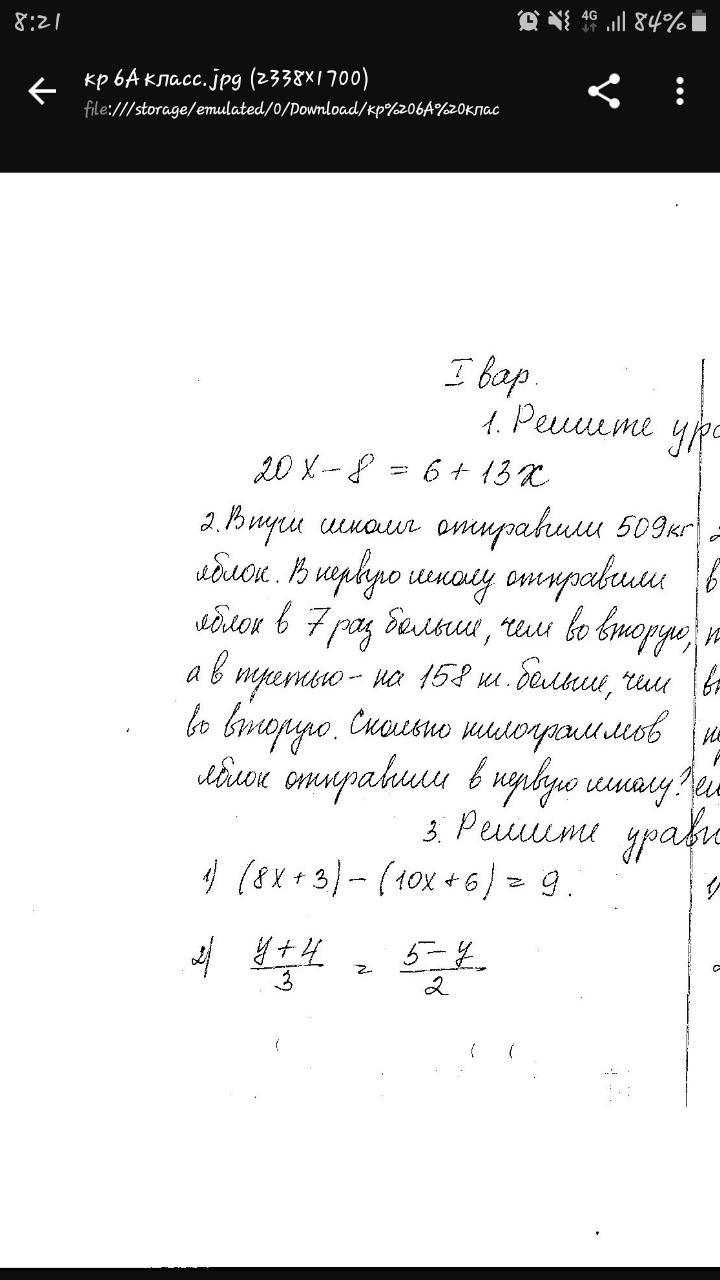 8:21
4G
84%
кр 6А класс.jpg (2338×1700)
file:///storage/emulated/0/Download/кр%206А%20клас
I вар.
1. Решите ура
20х - 8 = 6 + 13х
2. В три школы отправили 509кг
яблок. В первую школу отправили
яблок в 7 раз больше, чем во вторую,
а в третью - на 158 ш. больше, чем
во вторую. Сколько килограммов
яблок отправили в первую школу?
3. Решите уравн
1) (8х + 3) - (10х + 6) = 9.
2) y+4/3 = 5-y/2